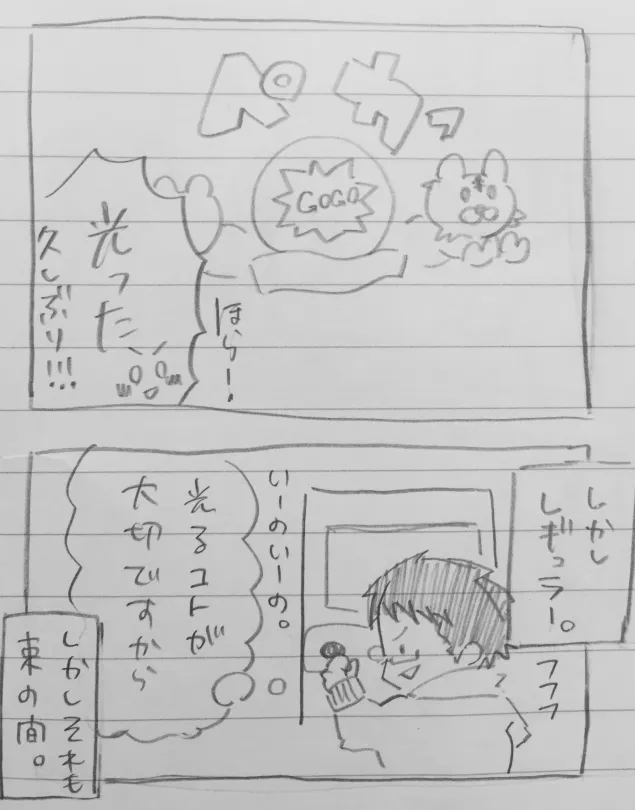 GOGO
ほらー!
光った
久しぶり!!!
しかし
レギュラー。
フフフ
いーのいーの。
光るコトが
大切ですから
しかしそれも
束の間。